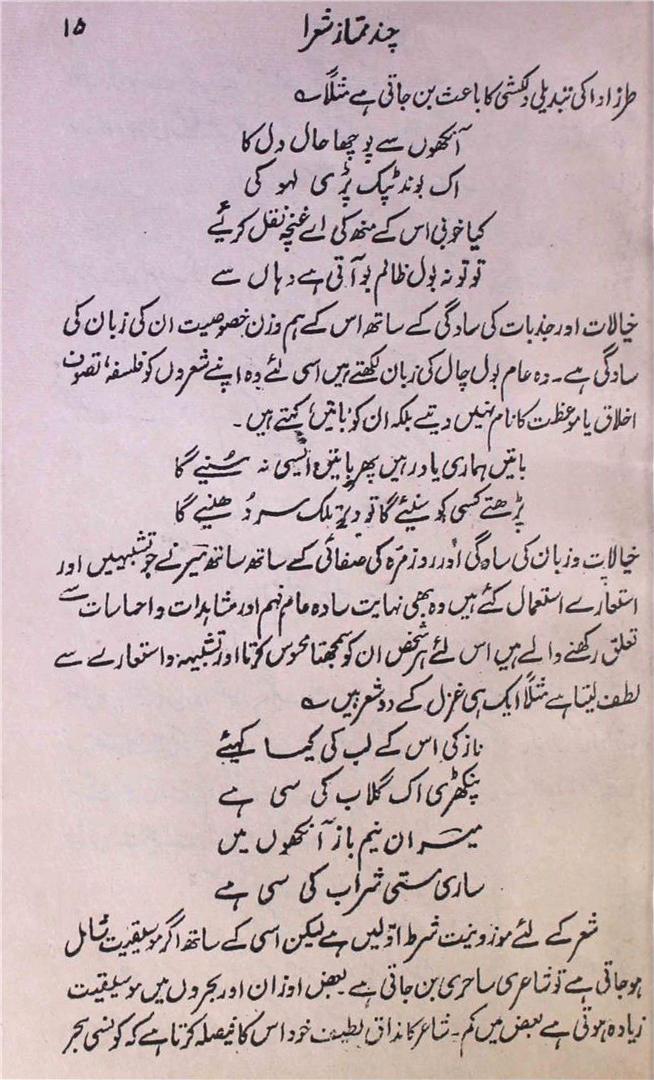 چند ممتاز شعرا ۱۵
طرز ادا کی تبدیلی دلکشی کا باعث بن جاتی ہے مثلاً ؎
آنکھوں سے پوچھا حال دل کا
اک بوند ٹپک پڑی لہو کی
کیا خوبی اس کے منھ کی اے غنچہ نقل کریئے
تو تو نہ بول ظالم بو آتی ہے دہاں سے
خیالات اور جذبات کی سادگی کے ساتھ اس کے ہم وزن خصوصیت ان کی زبان کی
سادگی ہے۔ وہ عام بول چال کی زبان لکھتے ہیں اسی لئے وہ اپنے شعروں کو فلسفہ، تصوف
اخلاق یا موعظت کا نام نہیں دیتے بلکہ ان کو ’باتیں‘ کہتے ہیں۔
باتیں ہماری یاد رہیں پھر باتیں ایسی نہ سُنیے گا
پڑھتے کسی کو سنیے گا تو دیر تلک سر دُھنیے گا
خیالات و زبان کی سادگی اور روزمرّہ کی صفائی کے ساتھ ساتھ میر نے جو تشبیہیں اور
استعارے استعمال کئے ہیں وہ بھی نہایت سادہ عام فہم اور مشاہدات و احساسات سے
تعلق رکھنے والے ہیں اس لئے ہر شخص ان کو سمجھتا محسوس کرتا اور تشبیہ و استعارے سے
لطف لیتا ہے مثلاً ایک ہی غزل کے دو شعر ہیں ؎
نازکی اس کے لب کی کیا کہیئے
پنکھڑی اک گلاب کی سی ہے
میر ان نیم باز آنکھوں میں
ساری مستی شراب کی سی ہے
شعر کے لئے موزونیت شرط اوّلیں ہے لیکن اسی کے ساتھ اگر موسیقیت شامل
ہو جاتی ہے تو شاعری ساحری بن جاتی ہے۔ بعض اوزان اور بحروں میں موسیقیت
زیادہ ہوتی ہے بعض میں کم۔ شاعر کا مذاق لطیف خود اس کا فیصلہ کرتا ہے کہ کونسی بحر